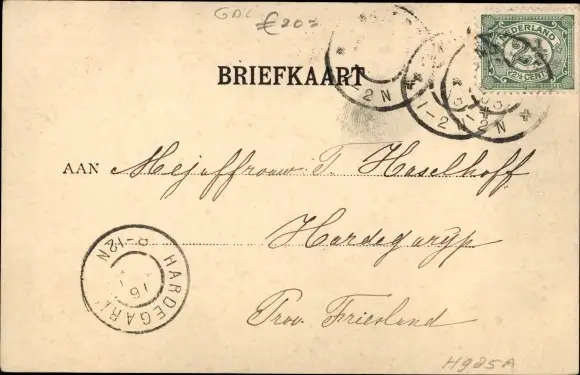 GDL €20=
NEDERLAND
2½
(2½ CENT)
BRIEFKAART
1-2 N
1-2 N
AAN Mejuffrouw T. Haselhoff
Hardegarijp
Prov. Friesland
8-12N HARDEGARIJ
H985A